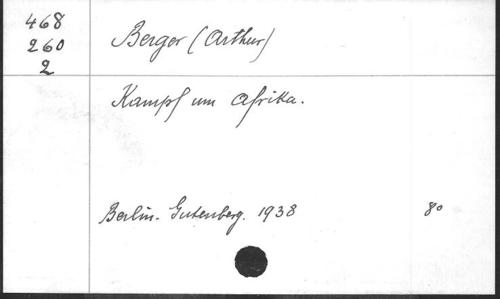 468
260
2
Berger (Arthur)
Kampf um Afrika.
Berlin. Gutenberg. 1938 8°